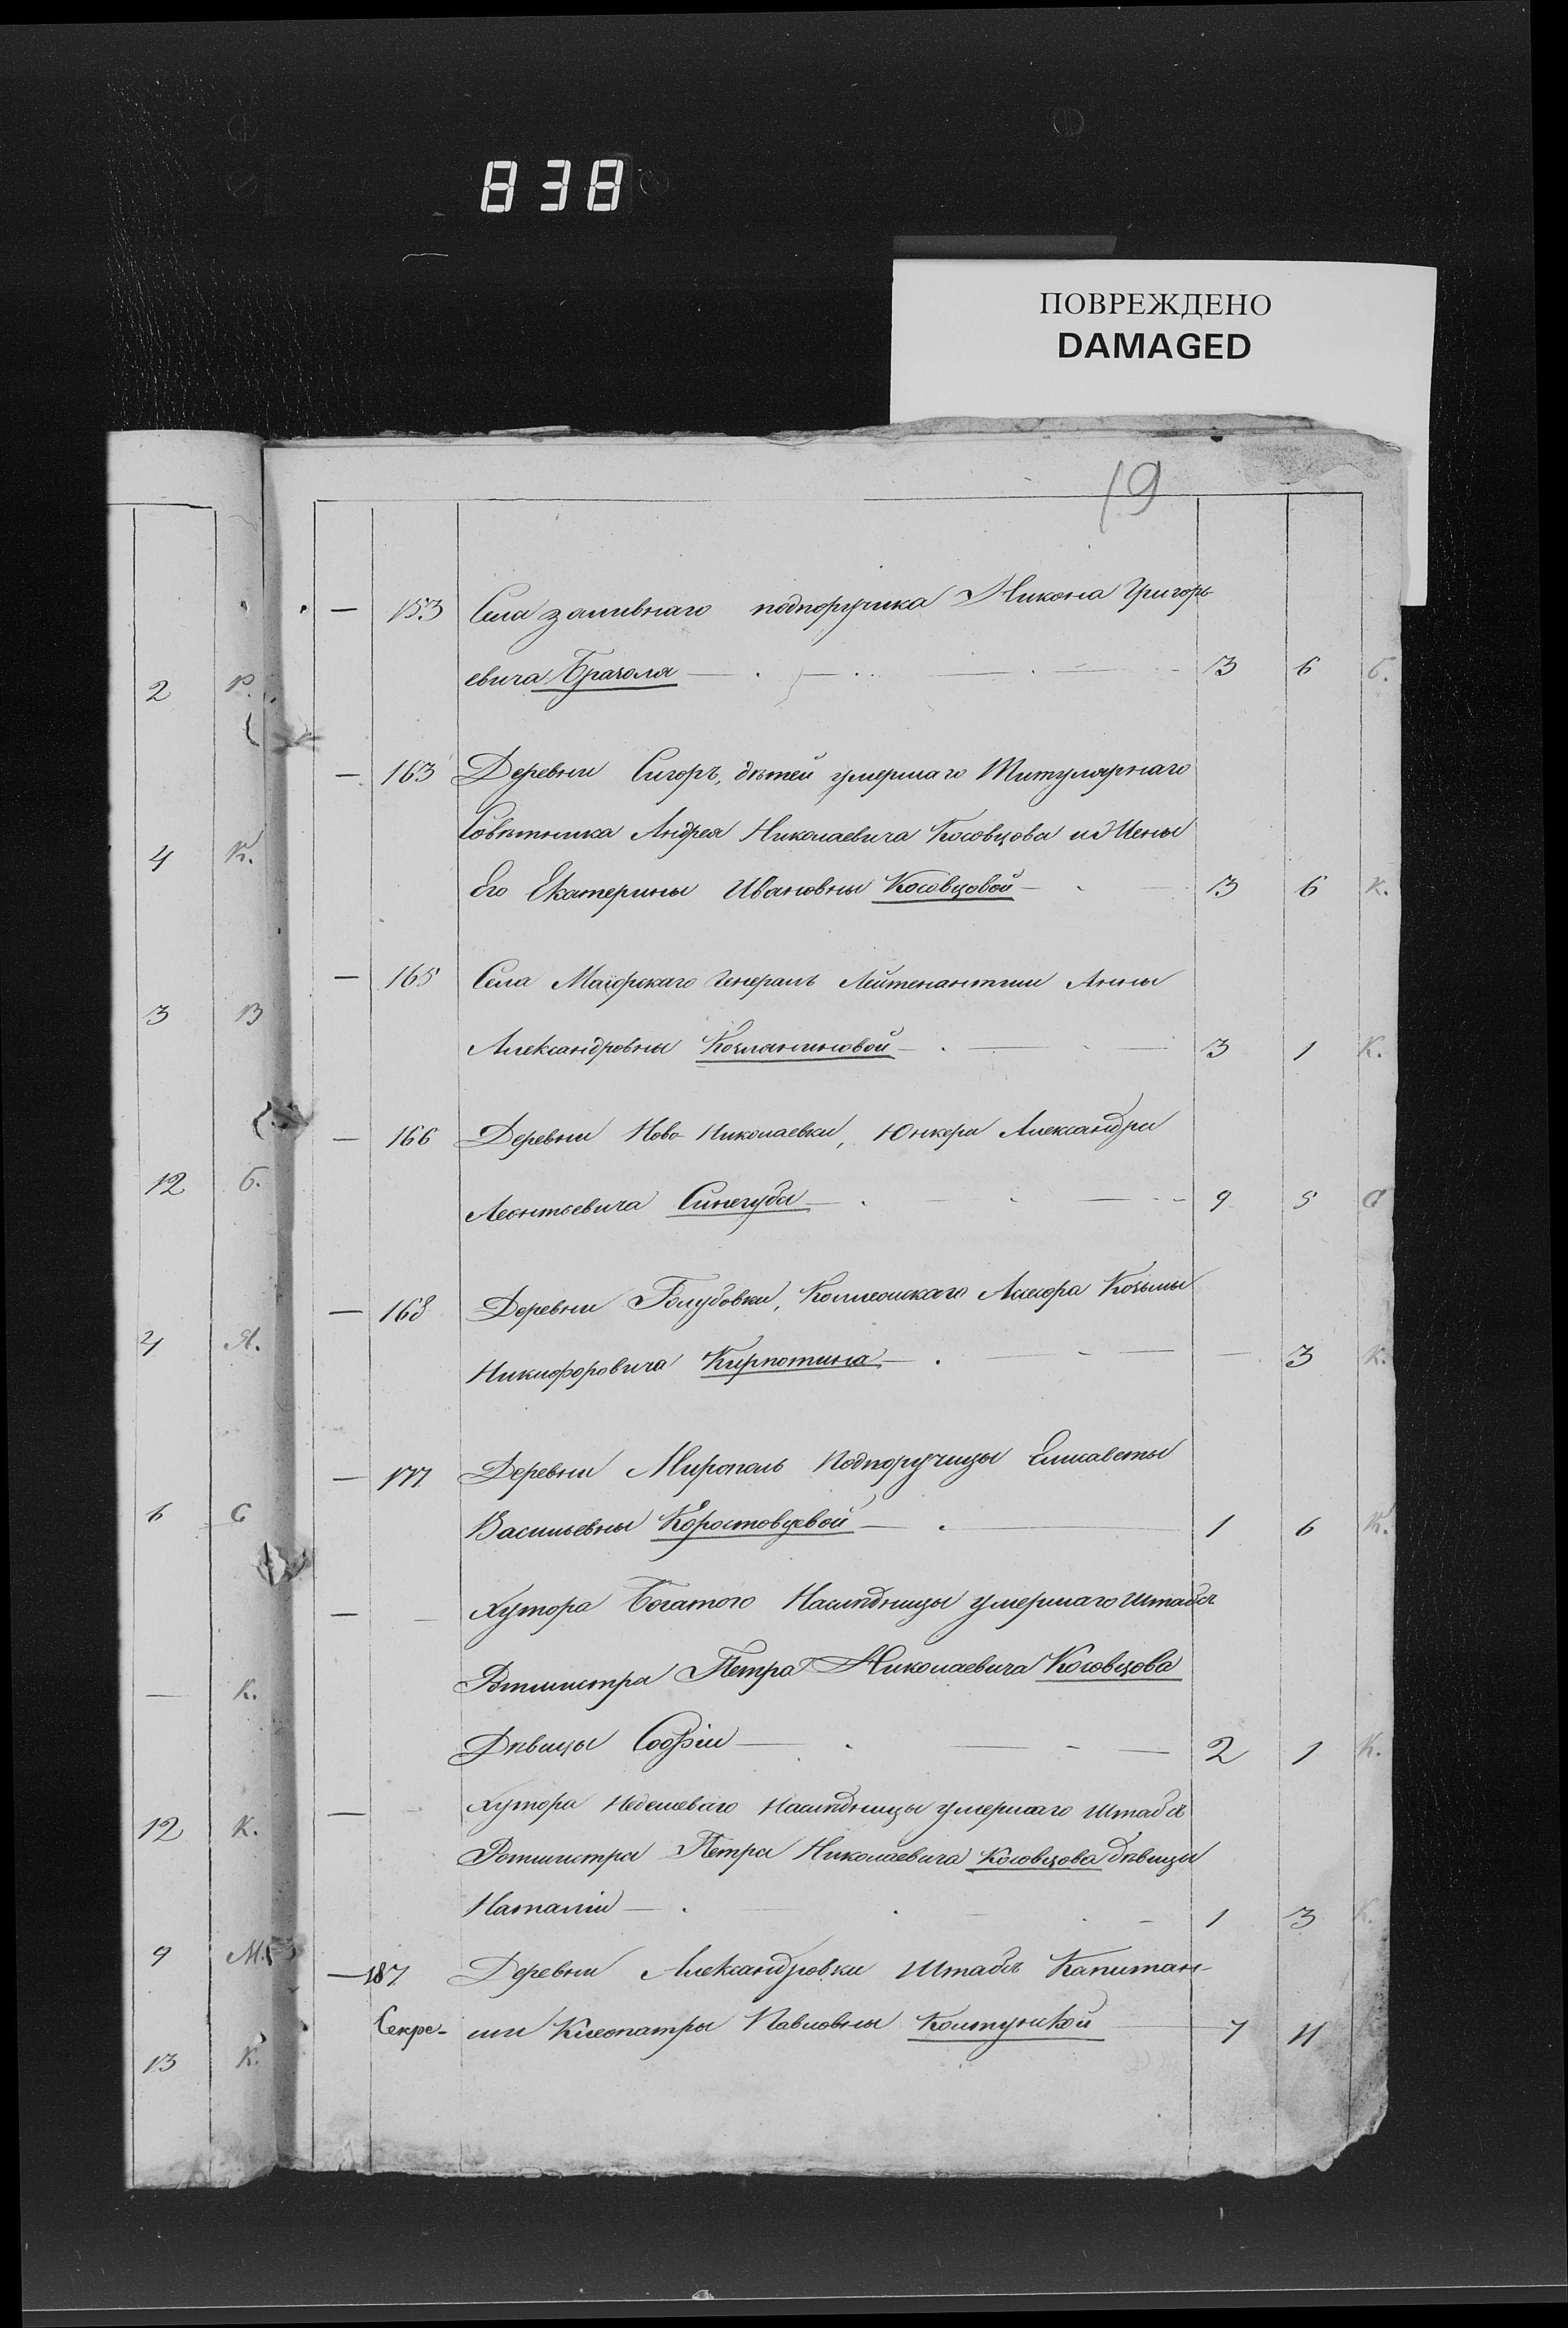 838
ПОВРЕЖДЕНО
DAMAGED
19
— 153 Села Заливнаго подпоручика Никона Григорь-
евича Браголя — 3 6 Б.
2 Р.
— 163 Деревни Сигоръ, дѣтей умершаго Титулярнаго
Совѣтника Андрея Николаевича Косовцова и Жены
4 К.
Его Екатерины Ивановны Косовцовой — 3 6 К.
— 165 Села Маіорскаго Генералъ Лейтенантши Анны
3 В
Александровны Козляниновой — 3 1 К.
— 166 Деревни Ново-Николаевки, Юнкера Александра
12 Б.
Леонтьевича Синегуба — 9 5 С
— 168 Деревни Голубовки, Коллежскаго Асесора Козьмы
4 Я.
Никифоровича Кирпотина — — 3 К.
— 177 Деревни Мирополь Подпоручицы Елисаветы
6 С
Васильевны Коростовцевой — 1 6 К.
— — Хутора Богатого Наслѣдницы умершаго Штабсъ
Ротмистра Петра Николаевича Косовцова
— К.
Дѣвицы Софіи — 2 1 К.
— Хутора Недешеваго Наслѣдницы умершаго Штабсъ
12 К.
Ротмистра Петра Николаевича Косовцова дѣвицы
Наталіи — 1 3 К.
9 М.
— 187 Деревни Александровки Штабсъ Капитан-
Секре- ши Клеопатры Павловны Колтунской 7 11
13 К.